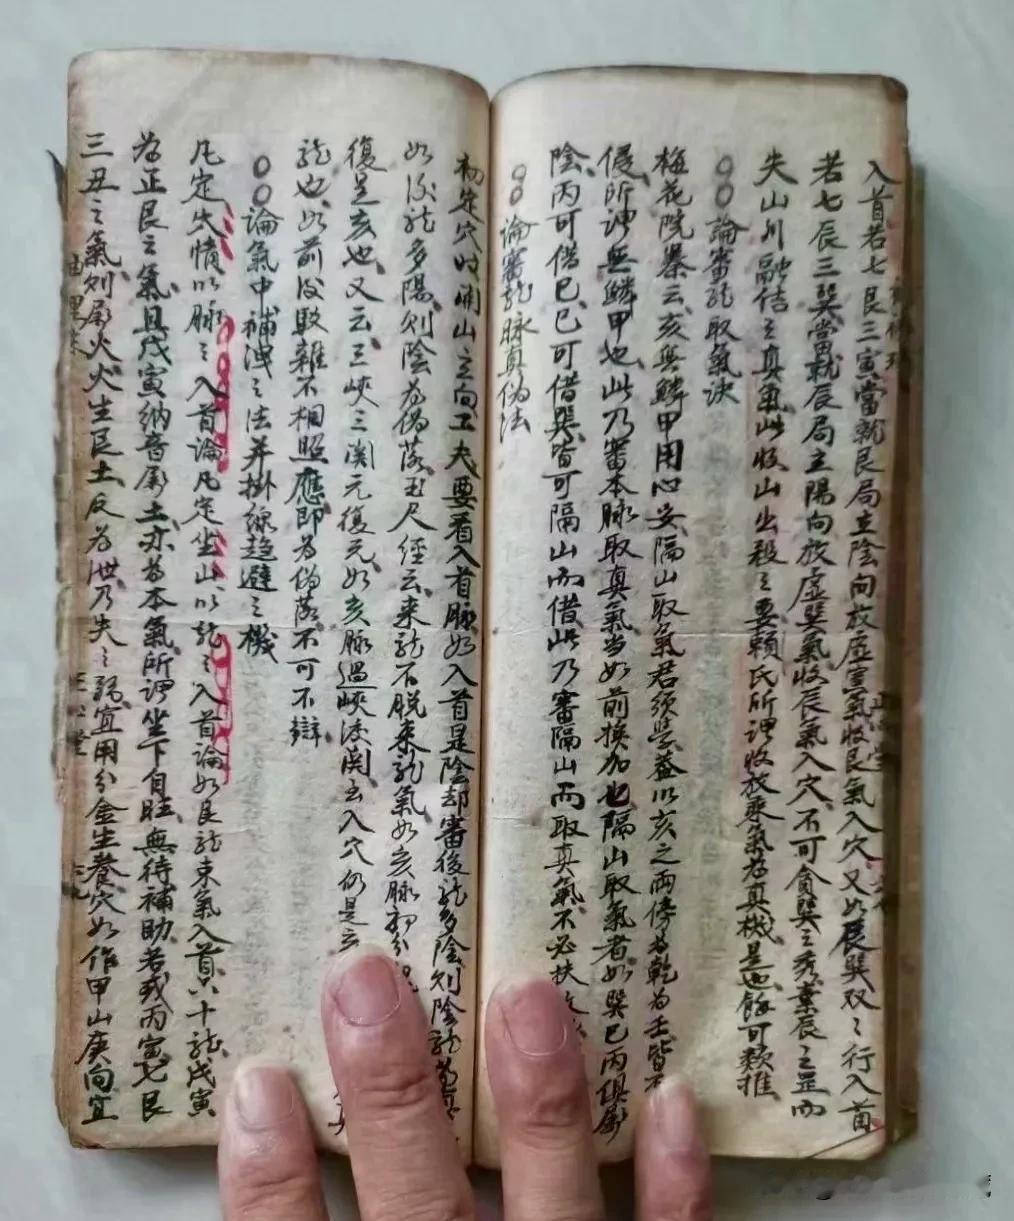 入首若七艮三寅當就艮局立陰向放虛寅氣收艮氣入穴又如辰巽双之行入首
若七辰三巽當就辰局立陽向放虛巽氣收辰氣入穴不可貪巽之秀棄辰之罡而
失山川融结之真氣此收山出殺之要賴氏所謂收放乘氣為真機是也餘可類推
○○論審龍取氣訣
梅花院纂云亥無鱗甲用心安隔山取氣君須學益以亥之兩傍為乾為壬皆不
假所謂無鱗甲也此乃審本脉取真氣当如前換加也隔山取氣者如巽巳丙俱屬
陰丙可借巳巳可借巽皆可隔山而借此乃審隔山而取真氣不必扶
○○論審龍脉真偽法
初定穴時開山立向工夫要看入首脉如入首是陰却審後龍多陰則陰龍為真
如後龍多陽則陰為偽落玉尺經云来龍不脱来龍氣如亥脉初分
復是亥也又云三峽三關元復元如亥脉過峽渡關去入穴仍是亥
龍也如前後駁雜不相照應即為偽落不可不辯
○○論氣中補洩之法并掛線趋避之機
凡定穴情以脉之入首論凡定坐山以龍之入首論如艮龍束氣入首六十龍戊寅
為正艮之氣且戊寅纳音屬土亦為本氣所謂坐下自旺無待補助若或丙寅七艮
三丑之氣則屬火火生艮土反為泄乃失之弱宜用分金生養穴如作甲山庚向宜